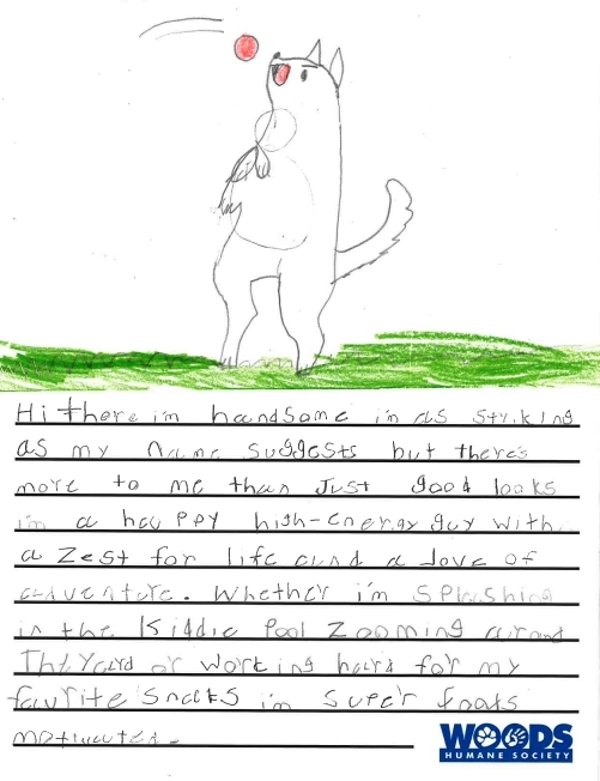 Hi there im handsome im as striking
as my name suggests but theres
more to me than Just good looks
im a happy high-energy guy with
a zest for life and a love of
adventure. Whether i'm splashing
in the Kiddie Pool Zooming around
The Yard or working hard for my
favrite snacks im super foods
motivated.
WOODS
HUMANE SOCIETY